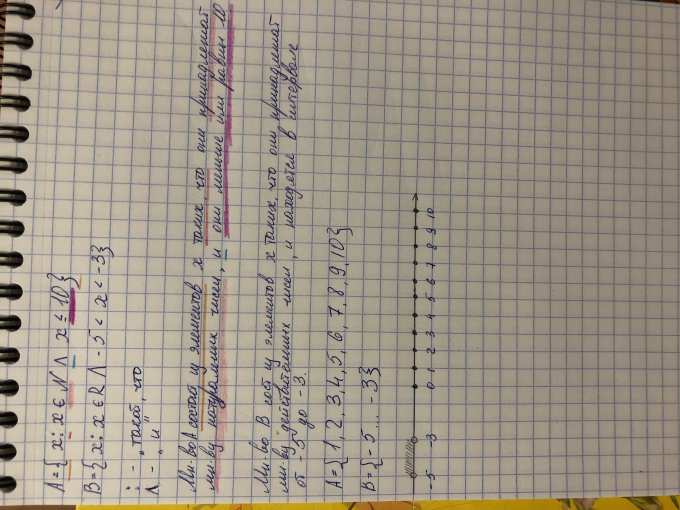 A = { x : x ∈ N ∧ x ≤ 10 }
B = { x : x ∈ R ∧ -5 < x < -3 }
: - "такой, что
∧ - "и"
Мн-во A состоит из элементов x таких, что они принадлежат
мн-ву натуральных чисел, и они меньше или равны 10
Мн-во B сост из элементов x таких, что они принадлежат
мн-ву действительных чисел, и находятся в интервале
от -5 до -3.
A = { 1, 2, 3, 4, 5, 6, 7, 8, 9, 10 }
B = { -5 ... -3 }
-5 -3 0 1 2 3 4 5 6 7 8 9 10